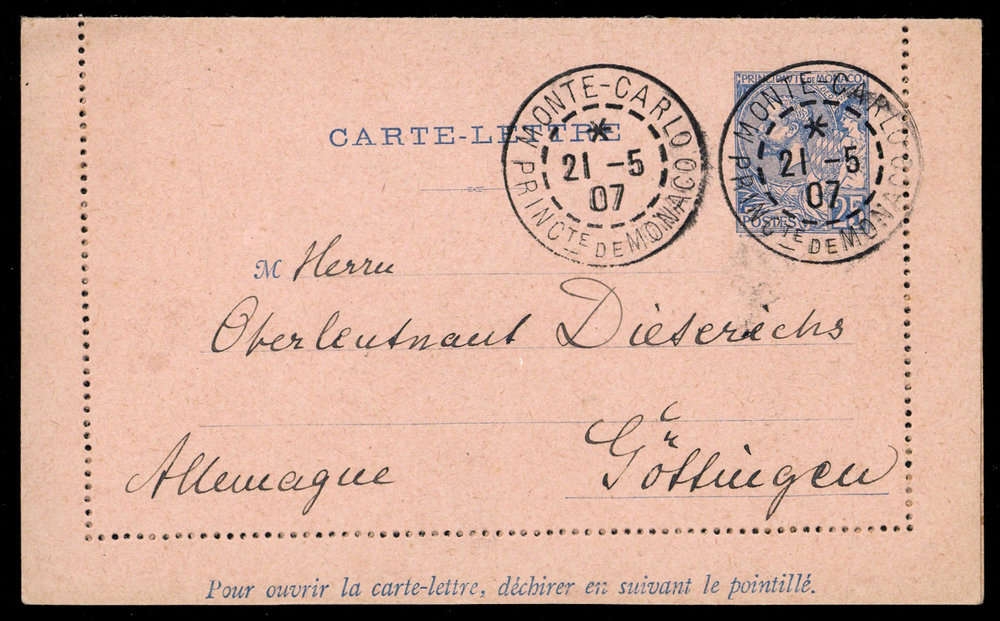 CARTE-LETTRE
MONTE-CARLO
*
21 -5
07
PRINCTE DE MONACO
PRINCIPAUTE DE MONACO
POSTES 25
MONTE-CARLO
*
21 -5
07
PRINCTE DE MONACO
M Herrn
Oberleutnant Dieterichs
Allemagne Göttingen
Pour ouvrir la carte-lettre, déchirer en suivant le pointillé.